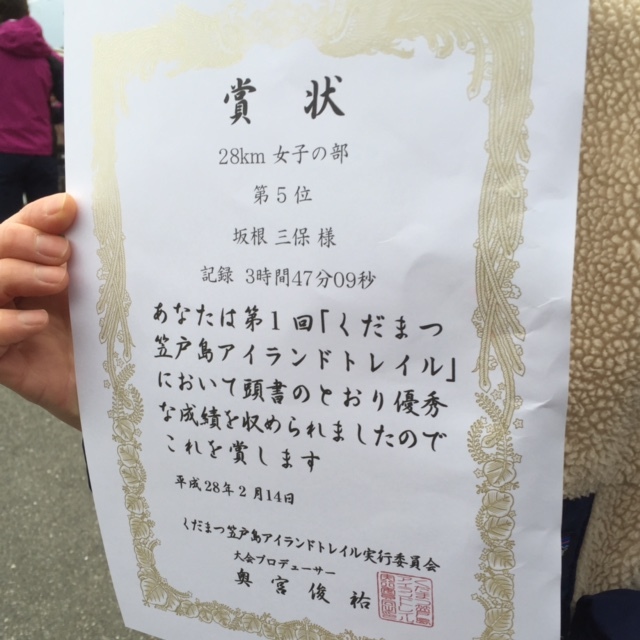 賞 状
28km 女子の部
第5位
坂根 三保 様
記録 3時間47分09秒
あなたは第1回「くだまつ
笠戸島アイランドトレイル」
において頭書のとおり優秀
な成績を収められましたので
これを賞します
平成28年2月14日
くだまつ笠戸島アイランドトレイル実行委員会
大会プロデューサー
奥宮俊祐